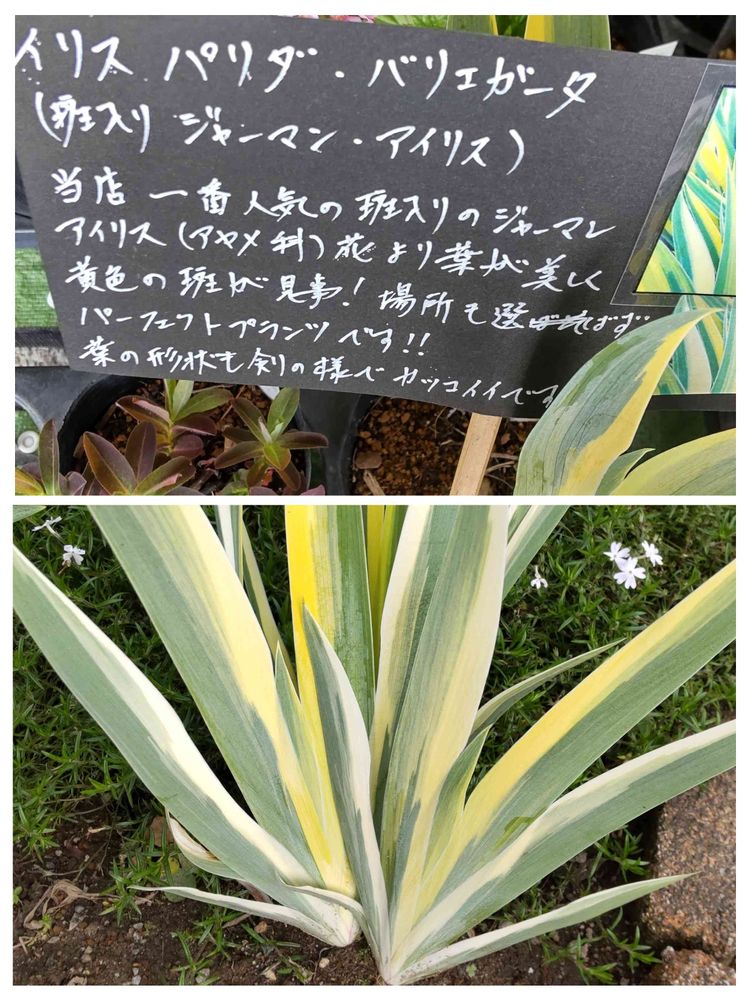 イリス パリダ・バリエガータ
(班入り ジャーマン・アイリス)
当店 一番人気の 班入りのジャーマン
アイリス(アヤメ科)花より葉が美しく
黄色の班が見事! 場所も選ばず
パーフェクトプランツです!!
葉の形状も剣の様で カッコイイです